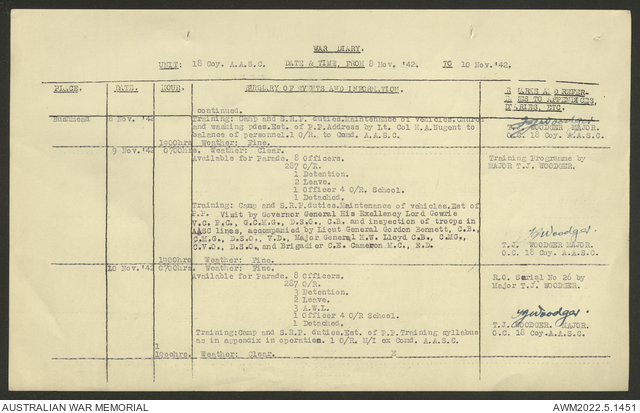 WAR DIARY.
UNIT: 18 Coy. A.A.S.C. DATE & TIME, FROM 8 Nov. '42. TO 10 Nov.'42.
PLACE. DATE. HOUR. SUMMARY OF EVENTS AND INFORMATION. REMARKS AND REFER-
ENCES TO APPENDICES,
DIARIES, ETC.
continued.
8 Nov. '42 Training: Camp and S.R.P. duties. Maintenance of vehicles. Church
and washing pdes. Est. of P.P. Address by Lt. Col H.A. Nugent to
balance of personnel. 1 O/R. to Comd. A.A.S.C.
1800hrs Weather: Fine.
T.J. WOODGER MAJOR.
O.C. 18 Coy. A.A.S.C.
9 Nov. '42 0700hrs. Weather: Clear.
Available for Parade. 8 Officers.
287 O/R.
1 Detention.
2 Leave.
1 Officer 4 O/R. School.
1 Detached.
Training Programme by
MAJOR T.J. WOODGER.
Training: Camp and S.R.P. duties. Maintenance of vehicles. Est of
P.P. Visit by Governor General His Exellency Lord Gowrie
V.C. P.C., G.C.M.G., D.S.O., C.B. and inspection of troops in
AASC lines, accompanied by Lieut General Gordon Bennett, C.B.,
C.M.G., D.S.O., V.D., Major General H.W. Lloyd C.B., C.MG.,
C.V.O., D.S.O., and Brigadier C.E. Cameron M.C., E.D.
1800hrs Weather: Fine.
TJWoodger
T.J. WOODGER MAJOR.
O.C. 18 Coy. A.A.S.C.
10 Nov. '42 0700hrs Weather: Fine.
Available for Parade. 8 Officers.
287 O/R.
3 Detention.
2 Leave.
3 A.W.L.
1 Officer 4 O/R School.
1 Detached.
R.O. Serial No 26 by
Major T.J. WOODGER.
Training: Camp and S.R.P. duties. Est. of P.P. Training syllabus
as in appendix in operation. 1 O/R. M/I ex Comd. A.A.S.C.
TJWoodger.
T.J. WOODGER. MAJOR.
O.C. 18 Coy. A.A.S.C.
Weather: Clear.
AUSTRALIAN WAR MEMORIAL
AWM2022.5.1451